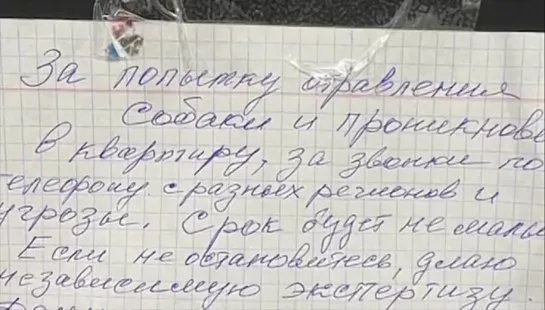 За попытку отравления
собаки и проникнове
в квартиру, за звонки по
телефону с разных регионов и
угрозы. Срок будет не малы
Если не остановитесь, длаю
независимую экспертизу.